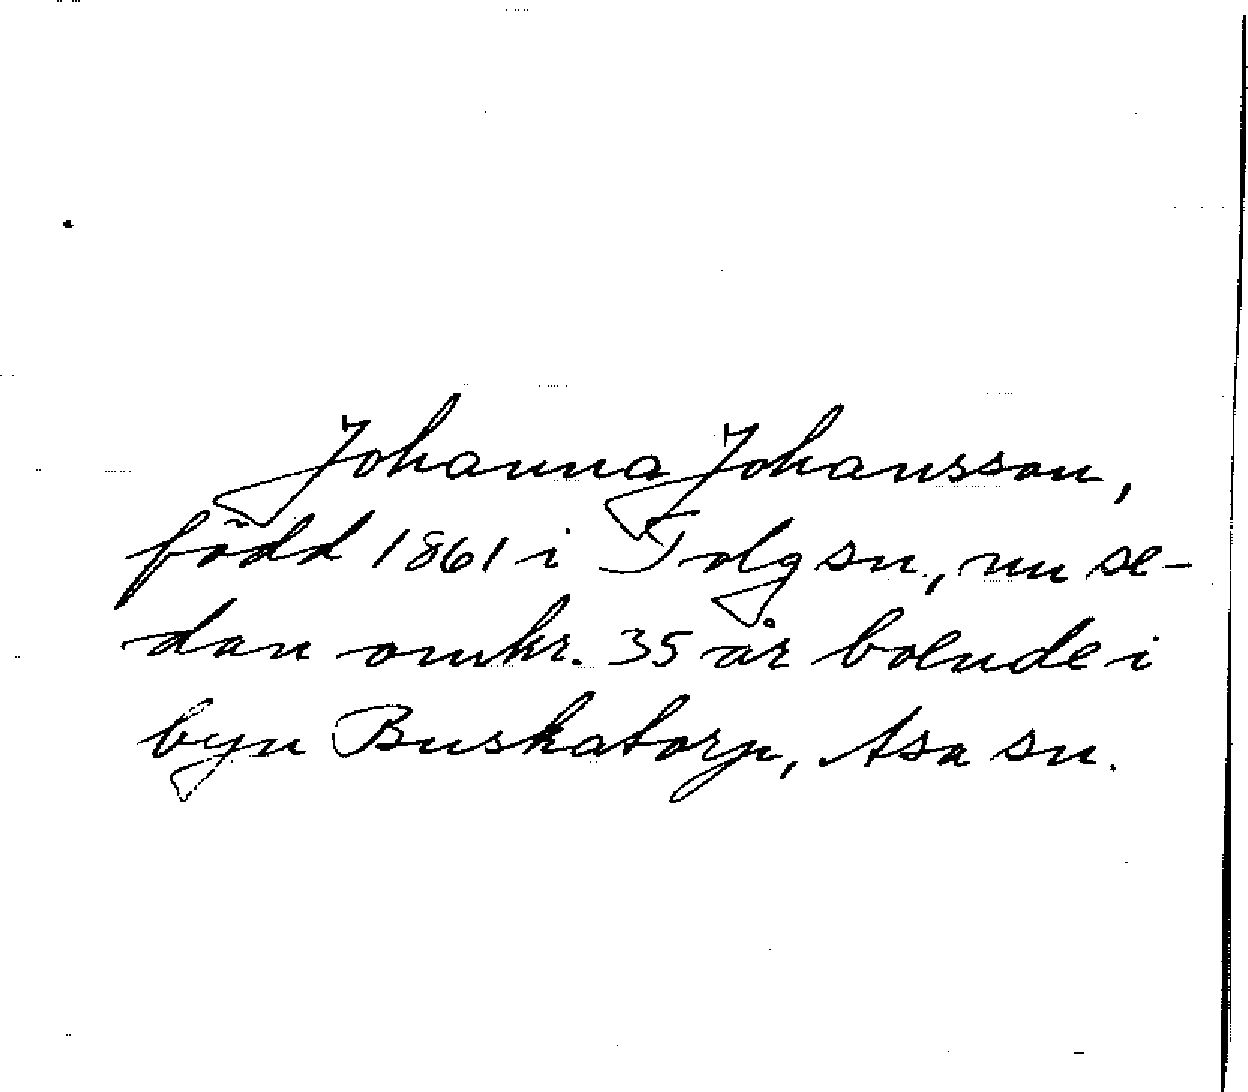 Johanna Johansson,
född 1861 i Tolg sn, nu se-
dan omkr. 35 år boende i
byn Buskatorp, Asa sn.